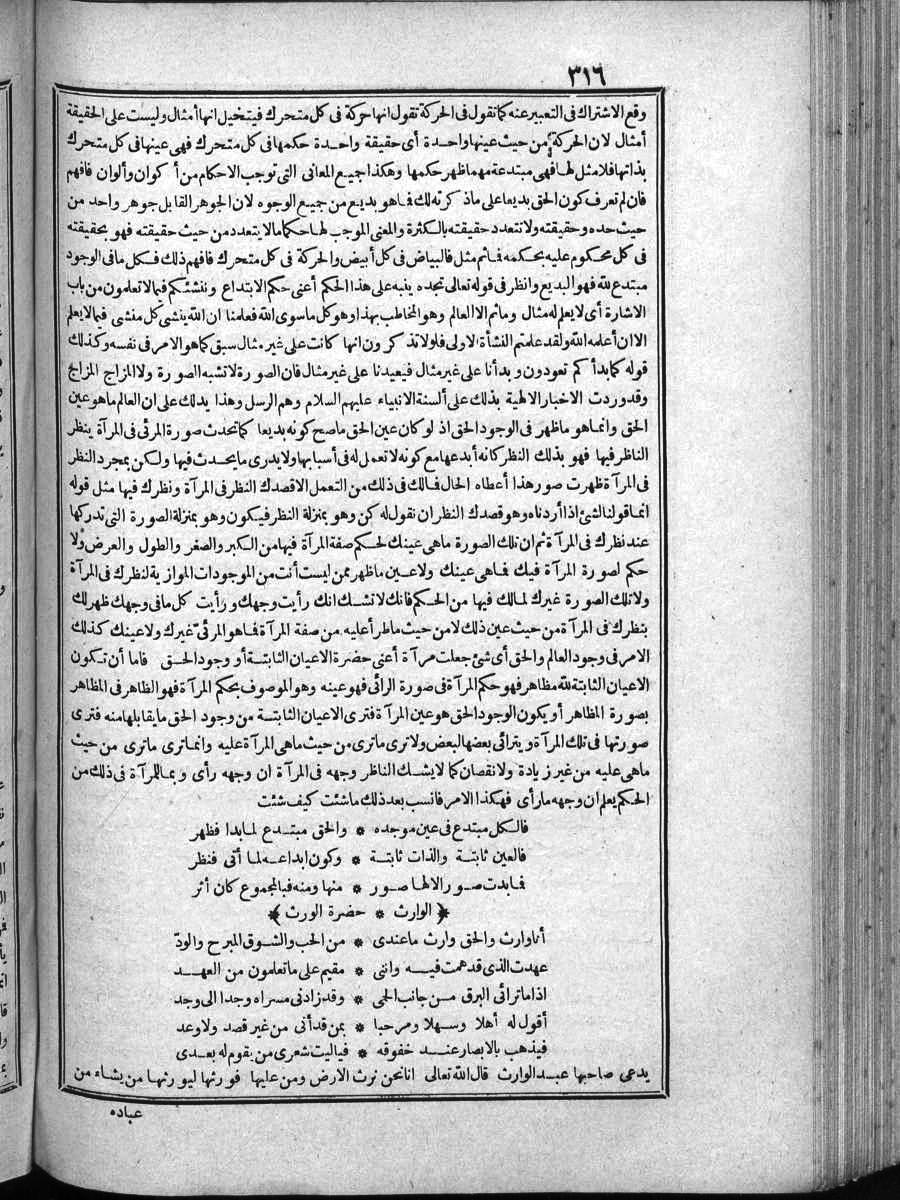 ٣١٦
وقع الاشتراك فى التعبير عنه كما نقول فى الحركة نقول انها حركة فى كل متحرك فيتخيل انها أمثال وليست على الحقيقة
أمثال لان الحركة من حيث عينها واحدة أى حقيقة واحدة حكمها فى كل متحرك فهى عينها فى كل متحرك
بذاتها فلا مثل لها فهى مبتدعة مهما ظهر حكمها وهكذا جميع المعانى التى توجب الاحكام من أكوان وألوان فافهم
فان لم تعرف كون الحق بديعا على ما ذكرته لك فما هو بديع من جميع الوجوه لان الجوهر القابل جوهر واحد من
حيث حده وحقيقته ولا تتعدد حقيقته بالكثرة والمعنى الموجب لها حكما ما لا يتعدد من حيث حقيقته فهو بحقيقته
فى كل محكوم عليه بحكمه فما ثم مثل فالبياض فى كل أبيض والحركة فى كل متحرك فافهم ذلك فكل ما فى الوجود
مبتدع لله فهو البديع وانظر فى قوله تعالى تجده ينبه على هذا الحكم أعنى حكم الابتداع وننشئكم فيما لا تعلمون من باب
الاشارة أى لا يعلم له مثال وما ثم الا العالم وهو المخاطب بهذا وهو كل ما سوى الله فعلمنا ان الله ينشئ كل منشئ فيما لا يعلم
الا ان أعلمه الله ولقد علمتم النشأة الاولى فلولا تذكرون انها كانت على غير مثال سبق كما هو الامر فى نفسه وكذلك
قوله كما بدأكم تعودون وبدأنا على غير مثال فيعيدنا على غير مثال فان الصورة لا تشبه الصورة ولا المزاج المزاج
وقد وردت الاخبار الالهية بذلك على ألسنة الانبياء عليهم السلام وهم الرسل وهذا يدلك على ان العالم ما هو عين
الحق وانما هو ما ظهر فى الوجود الحق اذ لو كان عين الحق ما صح كونه بديعا كما تحدث صورة المرئى فى المرآة ينظر
الناظر فيها فهو بذلك النظر كأنه أبدعها مع كونه لا تعمل له فى أسبابها ولا يدرى ما يحدث فيها ولكن بمجرد النظر
فى المرآة ظهرت صور هذا أعطاه الحال فما لك فى ذلك من التعمل الا قصدك النظر فى المرآة ونظرك فيها مثل قوله
انما قولنا لشئ اذا أردناه وهو قصدك النظر ان نقول له كن وهو بمنزلة النظر فيكون وهو بمنزلة الصورة التى تدركها
عند نظرك فى المرآة ثم ان تلك الصورة ما هى عينك لحكم صفة المرآة فيها من الكبر والصغر والطول والعرض ولا
حكم لصورة المرآة فيك فما هى عينك ولا عين ما ظهر ممن ليست أنت من الموجودات الموازية لنظرك فى المرآة
ولا تلك الصورة غيرك لما لك فيها من الحكم فانك لا تشك انك رأيت وجهك ورأيت كل ما فى وجهك ظهر لك
بنظرك فى المرآة من حيث عين ذلك لا من حيث ما طرأ عليه من صفة المرآة فما هو المرئى غيرك ولا عينك كذلك
الامر فى وجود العالم والحق أى شئ جعلت مرآة أعنى حضرة الاعيان الثابتة أو وجود الحق فاما أن تكون
الاعيان الثابتة لله مظاهر فهو حكم المرآة فى صورة الرائى فهو عينه وهو الموصوف بحكم المرآة فهو الظاهر فى المظاهر
بصورة المظاهر أو يكون الوجود الحق هو عين المرآة فترى الاعيان الثابتة من وجود الحق ما يقابلها منه فترى
صورتها فى تلك المرآة ويترائى بعضها لبعض ولا ترى ما ترى من حيث ما هى المرآة عليه وانما ترى ما ترى من حيث
ما هى عليه من غير زيادة ولا نقصان كما لا يشك الناظر وجهه فى المرآة ان وجهه رأى وبما للمرآة فى ذلك من
الحكم يعلم ان وجهه ما رأى فهكذا الامر فانسب بعد ذلك ما شئت كيف شئت
فالكل مبتدع فى عين موجده * والحق مبتدع لما بدا فظهر
فالعين ثابتة والذات ثابتة * وكون ابداعه لما أتى فنظر
فما بدت صور الا لها صور * منها ومنه فبالمجموع كان أثر
﴿الوارث * حضرة الورث﴾
أنا وارث والحق وارث ما عندى * من الحب والشوق المبرح والودّ
عهدت الذى قد همت فيه واننى * مقيم على ما تعلمون من العهد
اذا ما ترائى البرق من جانب الحمى * وقد زادنى مسراه وجدا الى وجد
أقول له أهلا وسهلا ومرحبا * بمن قد أتى من غير قصد ولا وعد
فيذهب بالابصار عند خفوقه * فيا ليت شعرى من يقوم له بعدى
يدعى صاحبها عبد الوارث قال الله تعالى انا نحن نرث الارض ومن عليها فورثها ليورثها من يشاء من
عباده